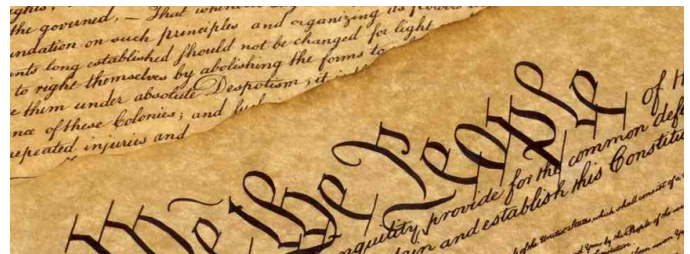 the governed, — That whenever
undation on such principles and organizing its powers
nts long established should not be changed for light
to right themselves by abolishing the forms to
e them under absolute Despotism, it is
nce of these Colonies; and
repeated injuries and
We the People
of th
nquility, provide for the common defe
and establish this Constitu
of the United States which shall consist of a